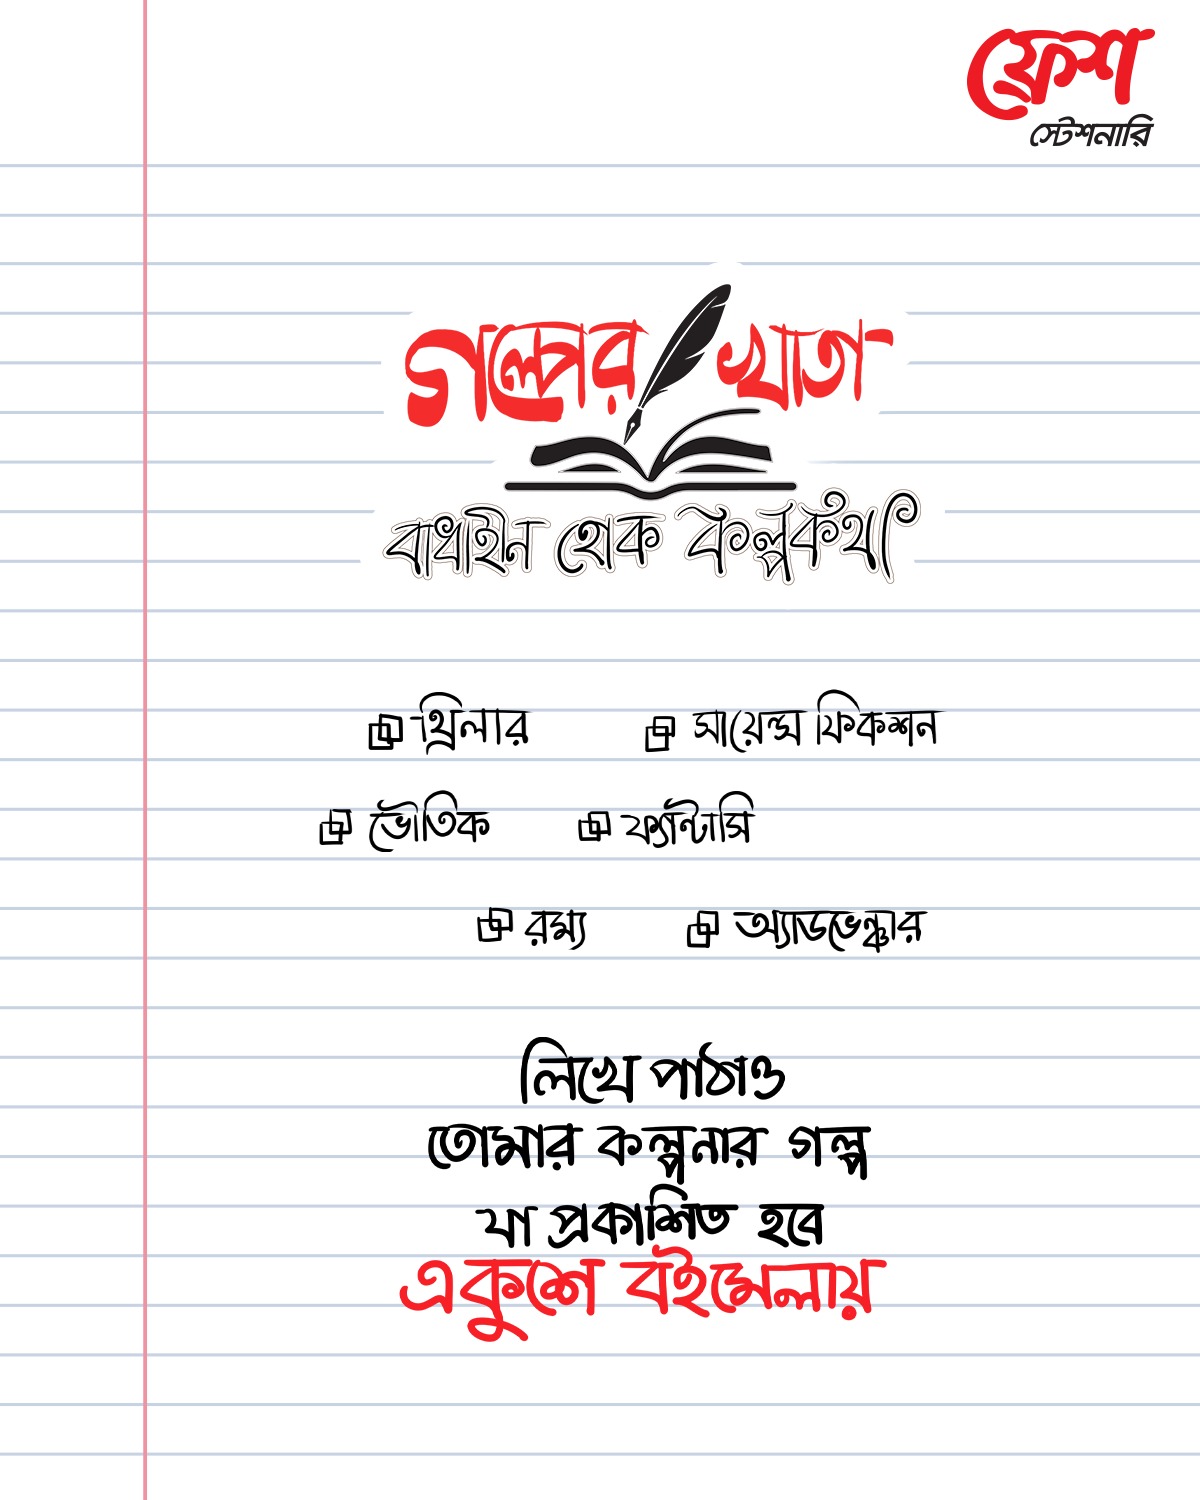 ফ্রেশ
স্টেশনারি
গল্পের খাতা
বাধাহীন হোক কল্পকথা
থ্রিলার সায়েন্স ফিকশন
ভৌতিক ফ্যান্টাসি
রম্য অ্যাডভেঞ্চার
লিখে পাঠাও
তোমার কল্পনার গল্প
যা প্রকাশিত হবে
একুশে বইমেলায়